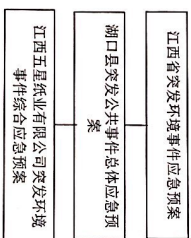 江西省突发环境事件应急预案
湖口县突发公共事件总体应急预
案
江西五星纸业有限公司突发环境
事件综合应急预案